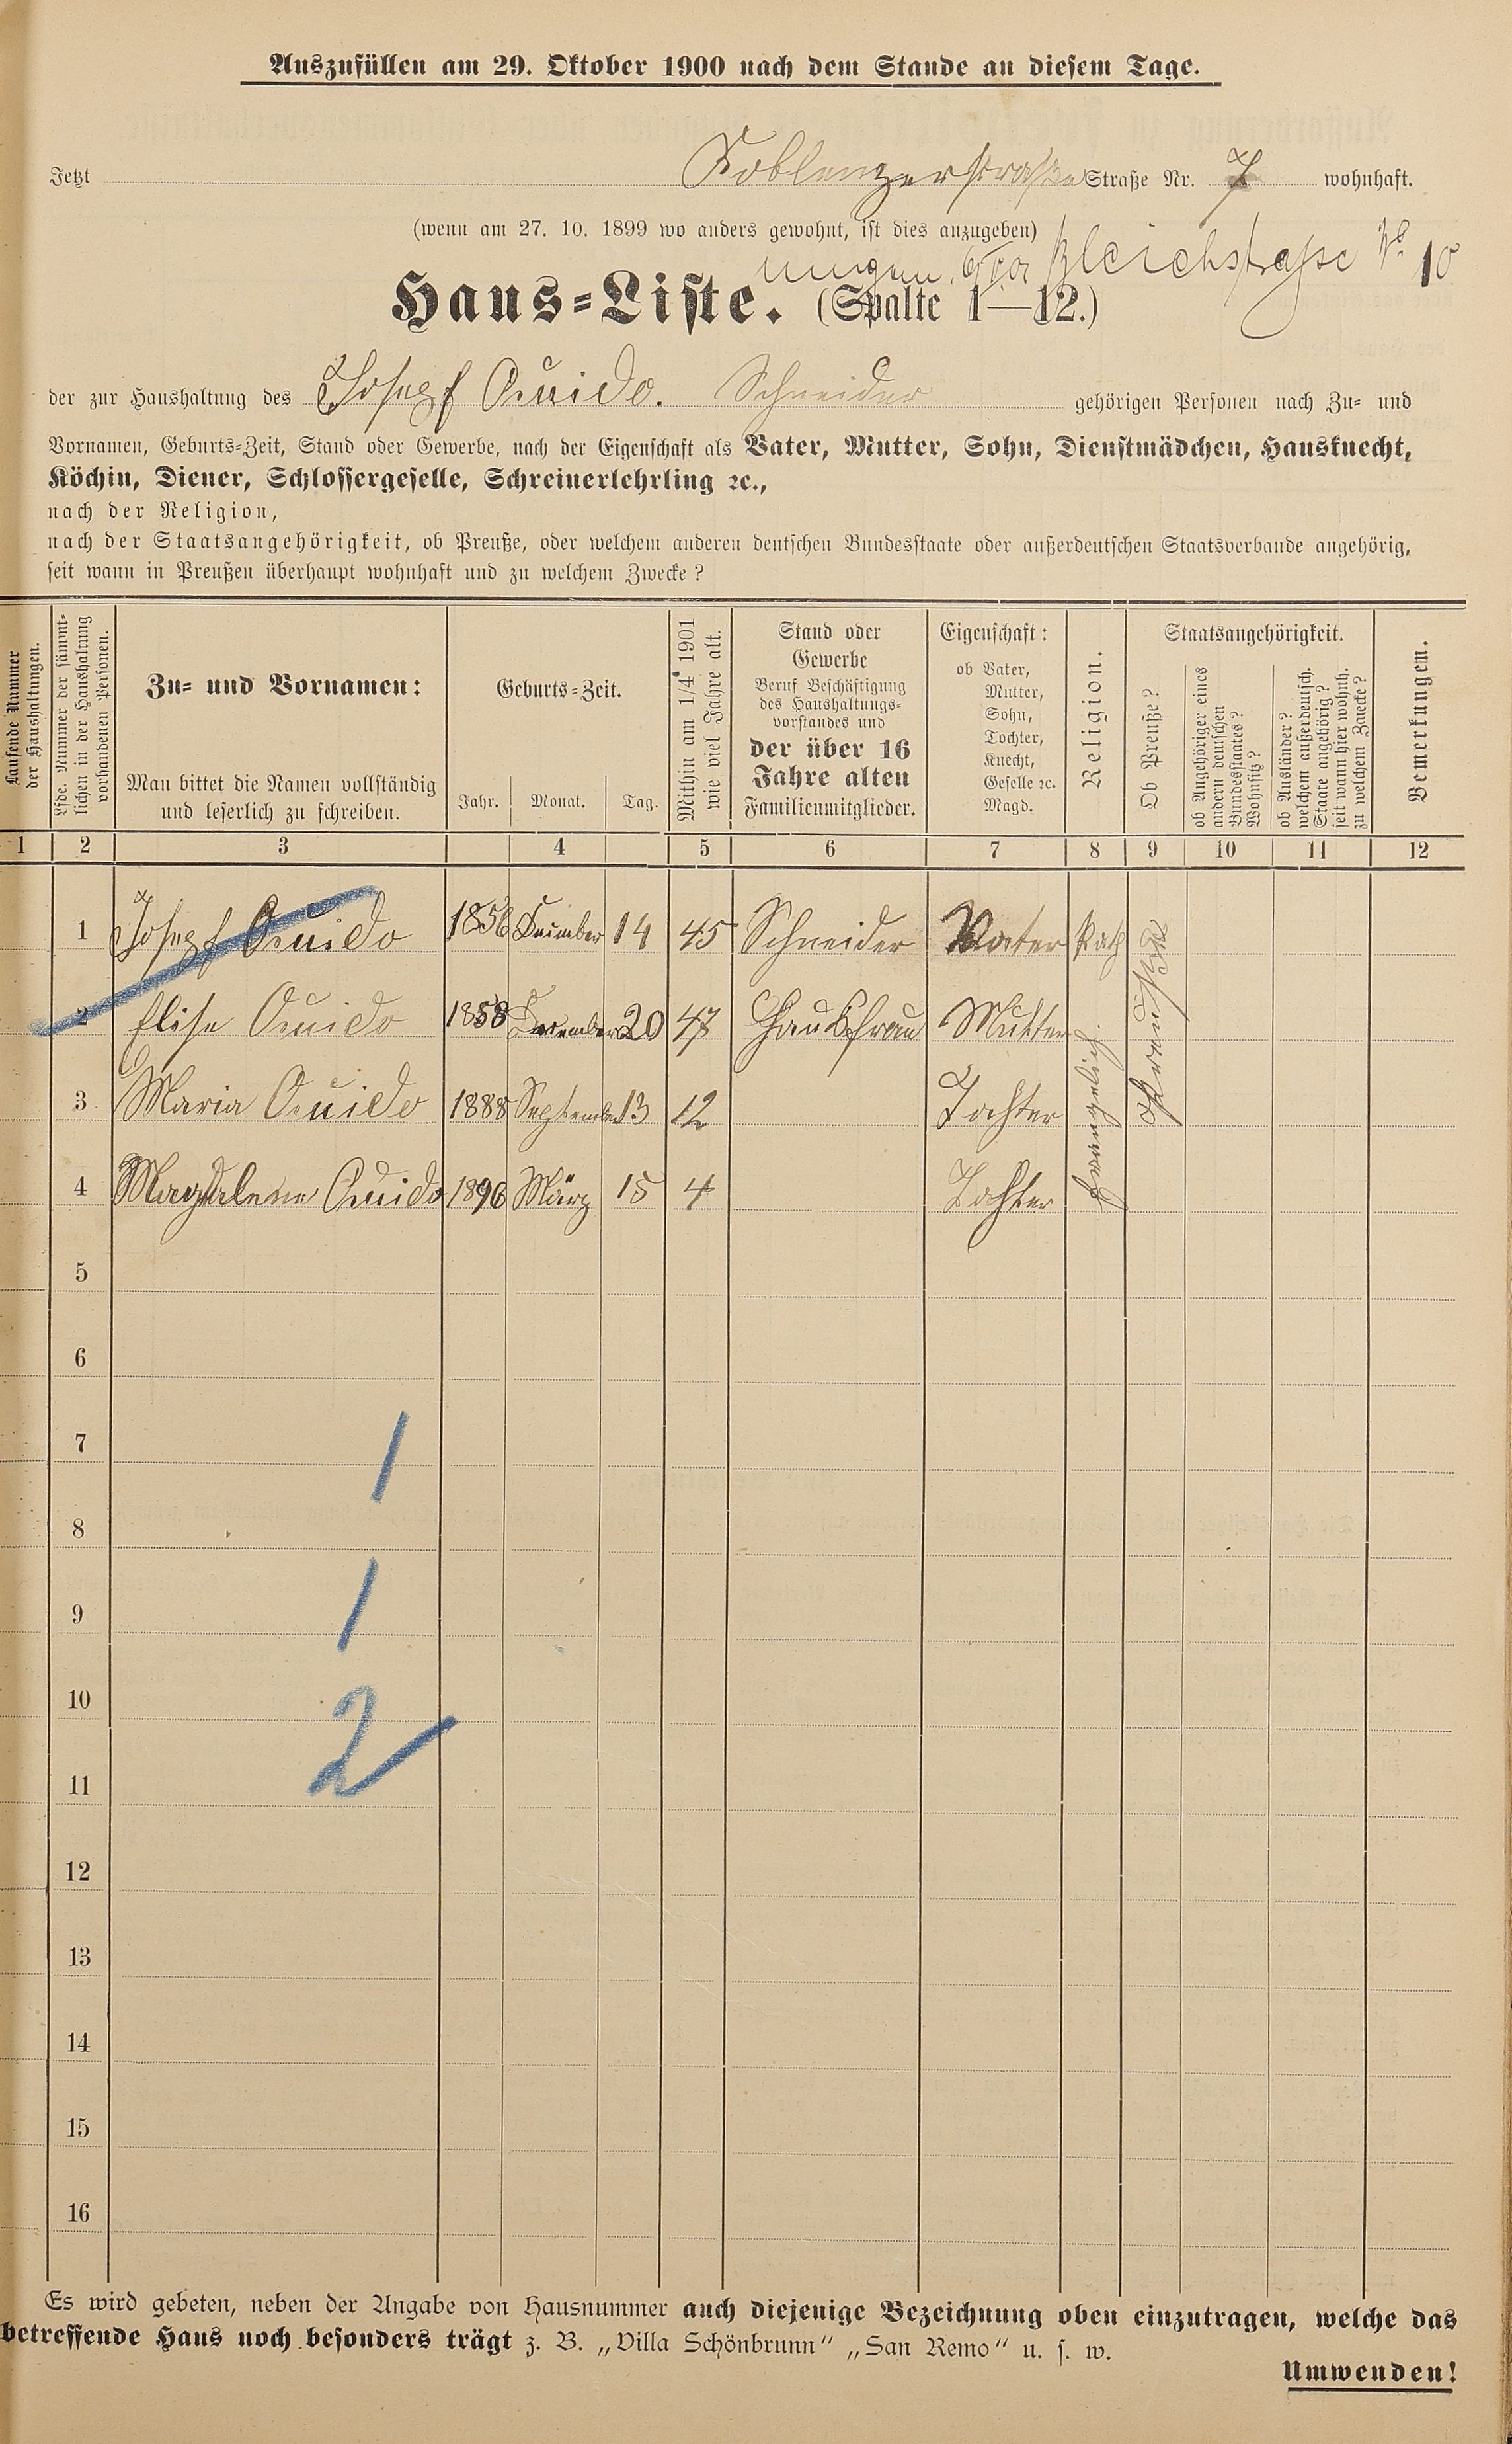 Auszufüllen am 29. Oktober 1900 nach dem Stande an diesem Tage.
Jetzt Koblenzerstraße Straße Nr. 7 wohnhaft.
(wenn am 27. 10. 1899 wo anders gewohnt, ist dies anzugeben)
Bleichstrasse No 10
Haus-Liste. (Spalte 1—12.)
der zur Haushaltung des Josepf Quido. Schneider gehörigen Personen nach Zu- und
Vornamen, Geburts-Zeit, Stand oder Gewerbe, nach der Eigenschaft als Vater, Mutter, Sohn, Dienstmädchen, Hausknecht,
Köchin, Diener, Schlossergeselle, Schreinerlehrling ꝛc.,
nach der Religion,
nach der Staatsangehörigkeit, ob Preuße, oder welchem anderen deutschen Bundesstaate oder außerdeutschen Staatsverbande angehörig,
seit wann in Preußen überhaupt wohnhaft und zu welchem Zwecke?
Laufende Nummer der Haushaltungen.
Lfde. Nummer der sämmtlichen in der Haushaltung vorhandenen Personen.
Zu- und Vornamen:
Man bittet die Namen vollständig
und leserlich zu schreiben.
Geburts-Zeit.
Jahr. Monat. Tag.
Mithin am 1/4 1901 wie viel Jahre alt.
Stand oder
Gewerbe
Beruf Beschäftigung
des Haushaltungs-
vorstandes und
der über 16
Jahre alten
Familienmitglieder.
Eigenschaft:
ob Vater,
Mutter,
Sohn,
Tochter,
Knecht,
Geselle ꝛc.
Magd.
Religion.
Staatsangehörigkeit.
Ob Preuße?
ob Angehöriger eines andern deutschen Bundesstaates? Wohnsitz?
ob Ausländer? welchem außerdeutsch. Staate angehörig? seit wann hier wohnh. zu welchem Zwecke?
Bemerkungen.
1 2 3 4 5 6 7 8 9 10 11 12
1 Josepf Quido 1856 Dezember 14 45 Schneider Vater Kath
2 Elise Quido 1858 Dezember 20 47 Hausfrau Mutter
3 Maria Quido 1888 September 13 12 Tochter
4 Magdalena Quido 1896 März 15 4 Tochter
Evangelisch
Preuße
5
6
7
1
8
9
1
10
2
11
12
13
14
15
16
Es wird gebeten, neben der Angabe von Hausnummer auch diejenige Bezeichnung oben einzutragen, welche das
betreffende Haus noch besonders trägt z. B. „Villa Schönbrunn“ „San Remo“ u. s. w.
Umwenden!